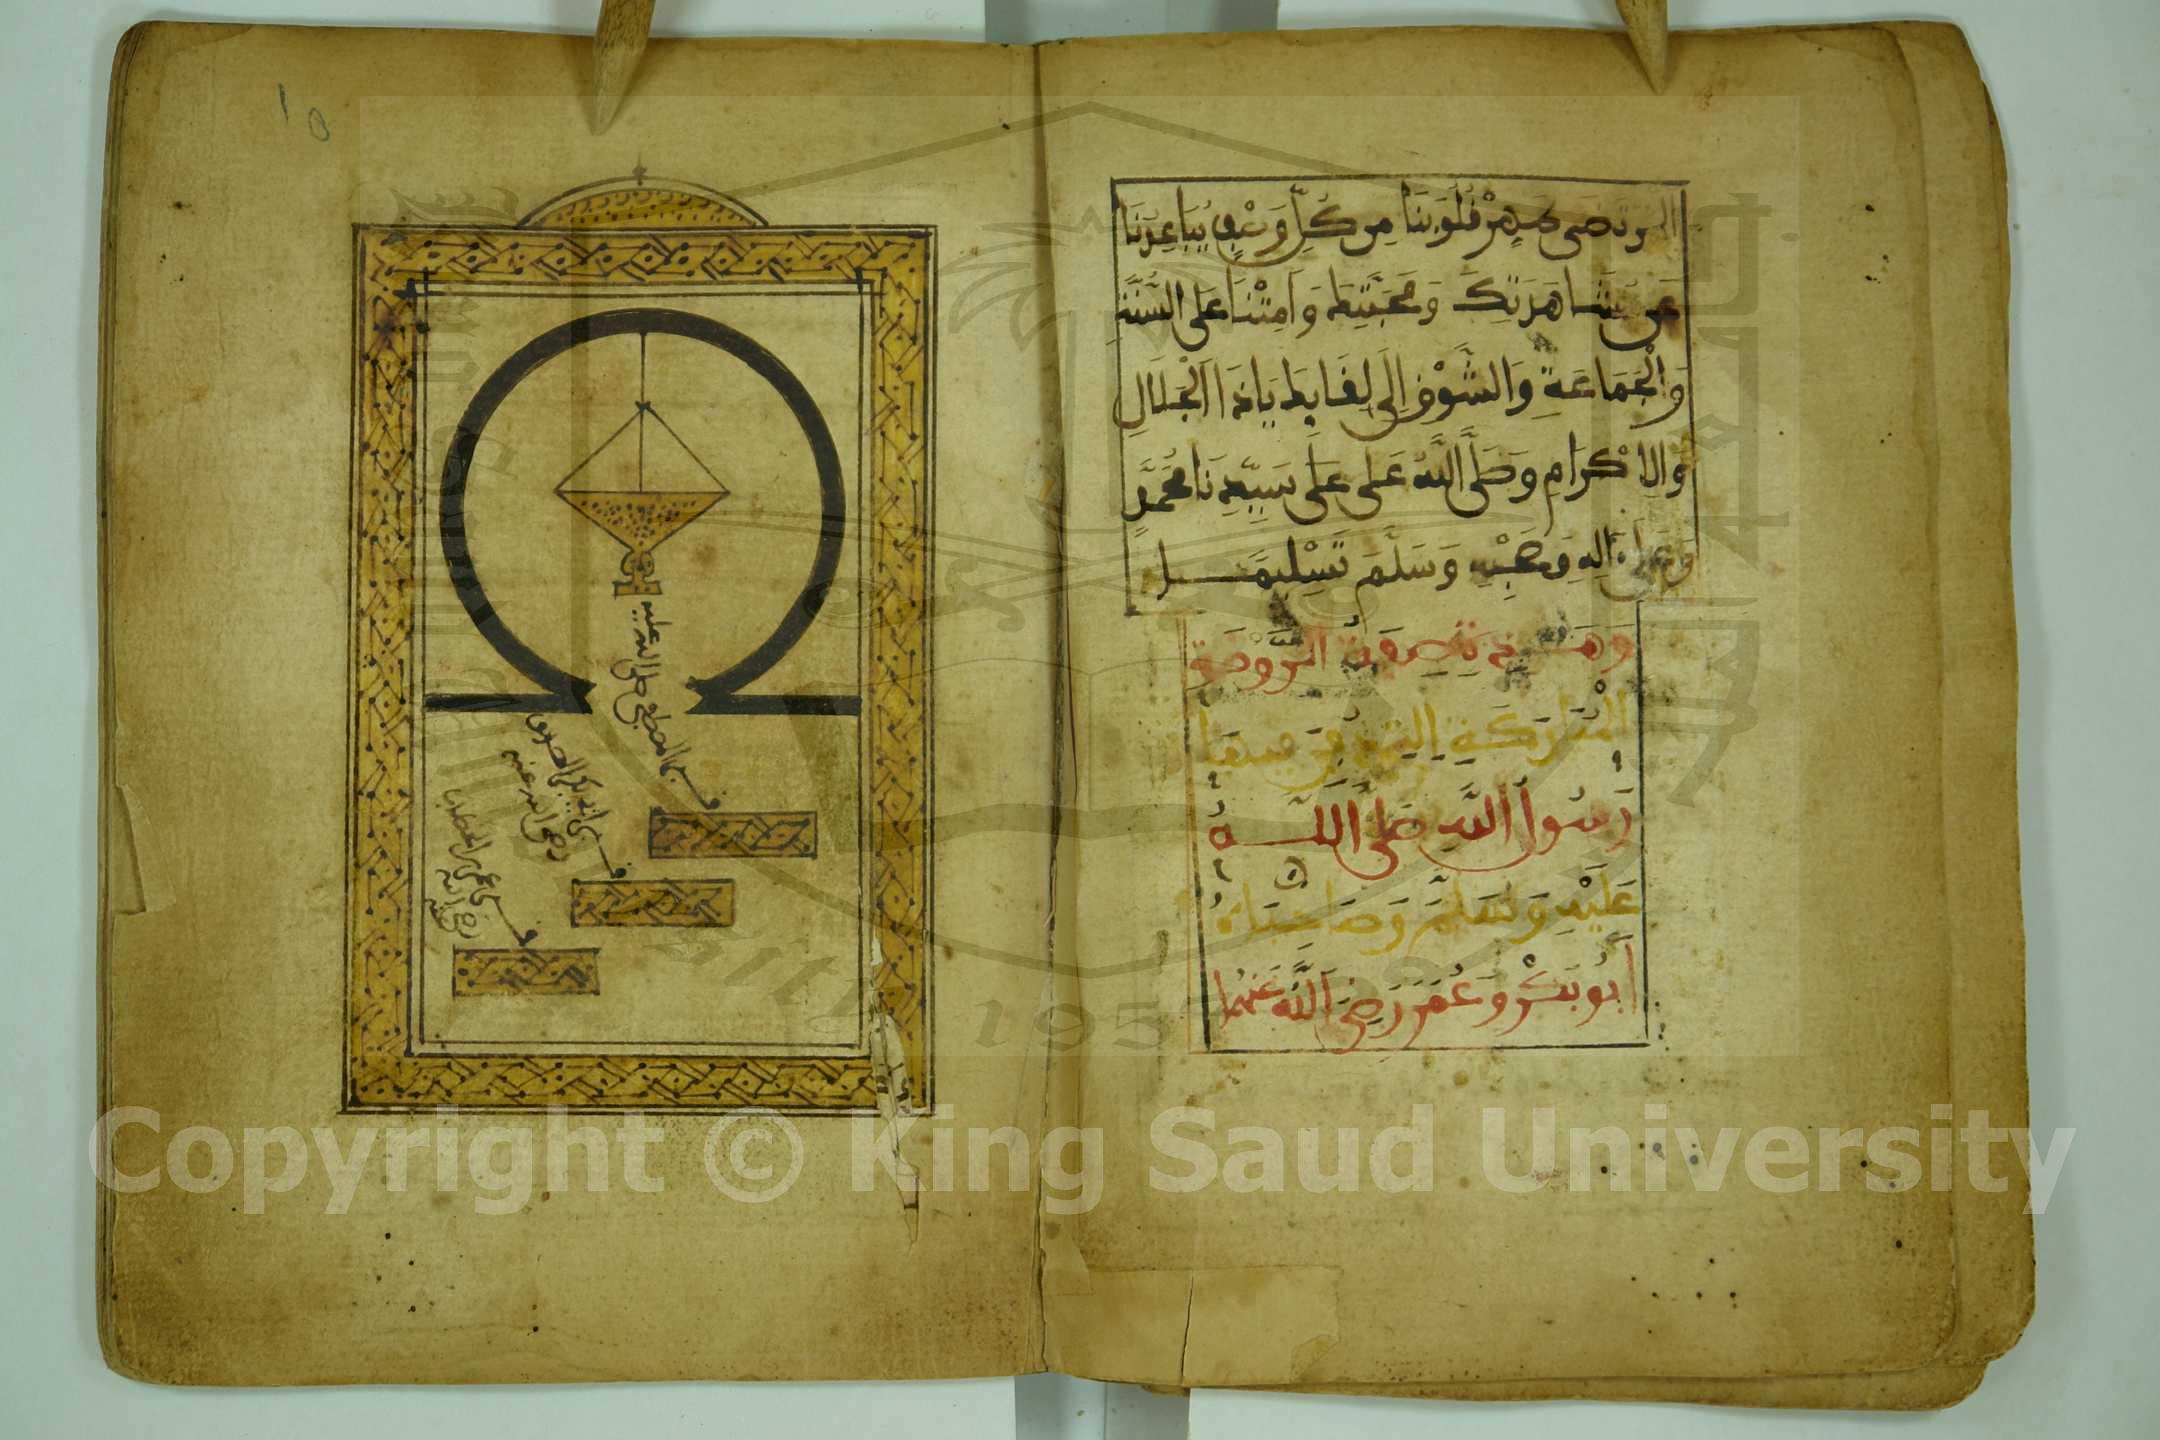 المرتضى طهر قلوبنا من كل وصف يباعدنا
عن مشاهدتك ومحبتك وامتنا على السنة
والجماعة والشوق إلى لقائك ياذا الجلال
والاكرام وصلى الله على على سيدنا محمد
وعلى ءاله وصحبه وسلم تسليما
وهذه صفة الروضة
المباركة التي دفن فيها
رسول الله صلى الله
عليه وسلم وصاحباه
أبو بكر وعمر رضي الله عنهما
10
قبر المصطفى صلى الله عليه
قبر أبي بكر الصديق
رضي الله عنه
قبر عمر بن الخطاب
رضي الله عنه
1957
Copyright © King Saud University